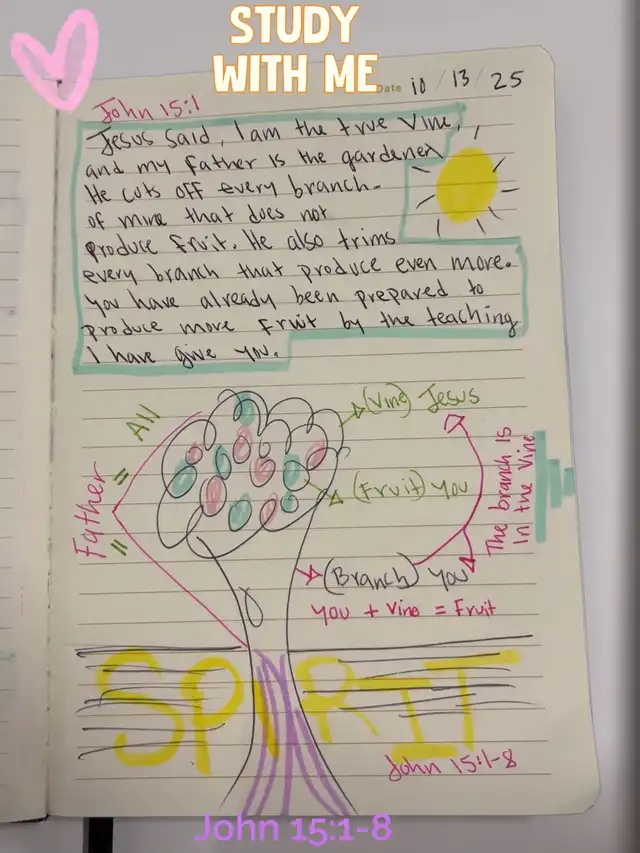 STUDY
WITH ME
Date 10 / 13 / 25
John 15:1
Jesus said, I am the true Vine,
and my father is the gardener
He cuts off every branch-
of mine that does not
produce fruit. He also trims
every branch that produce even more.
you have already been prepared to
produce more fruit by the teaching
I have give you.
All
Father =
=
(Vine) Jesus
(Fruit) you
(Branch) you
The branch is
In the Vine
you + Vine = Fruit
SPIRIT
John 15:1-8
John 15:1-8